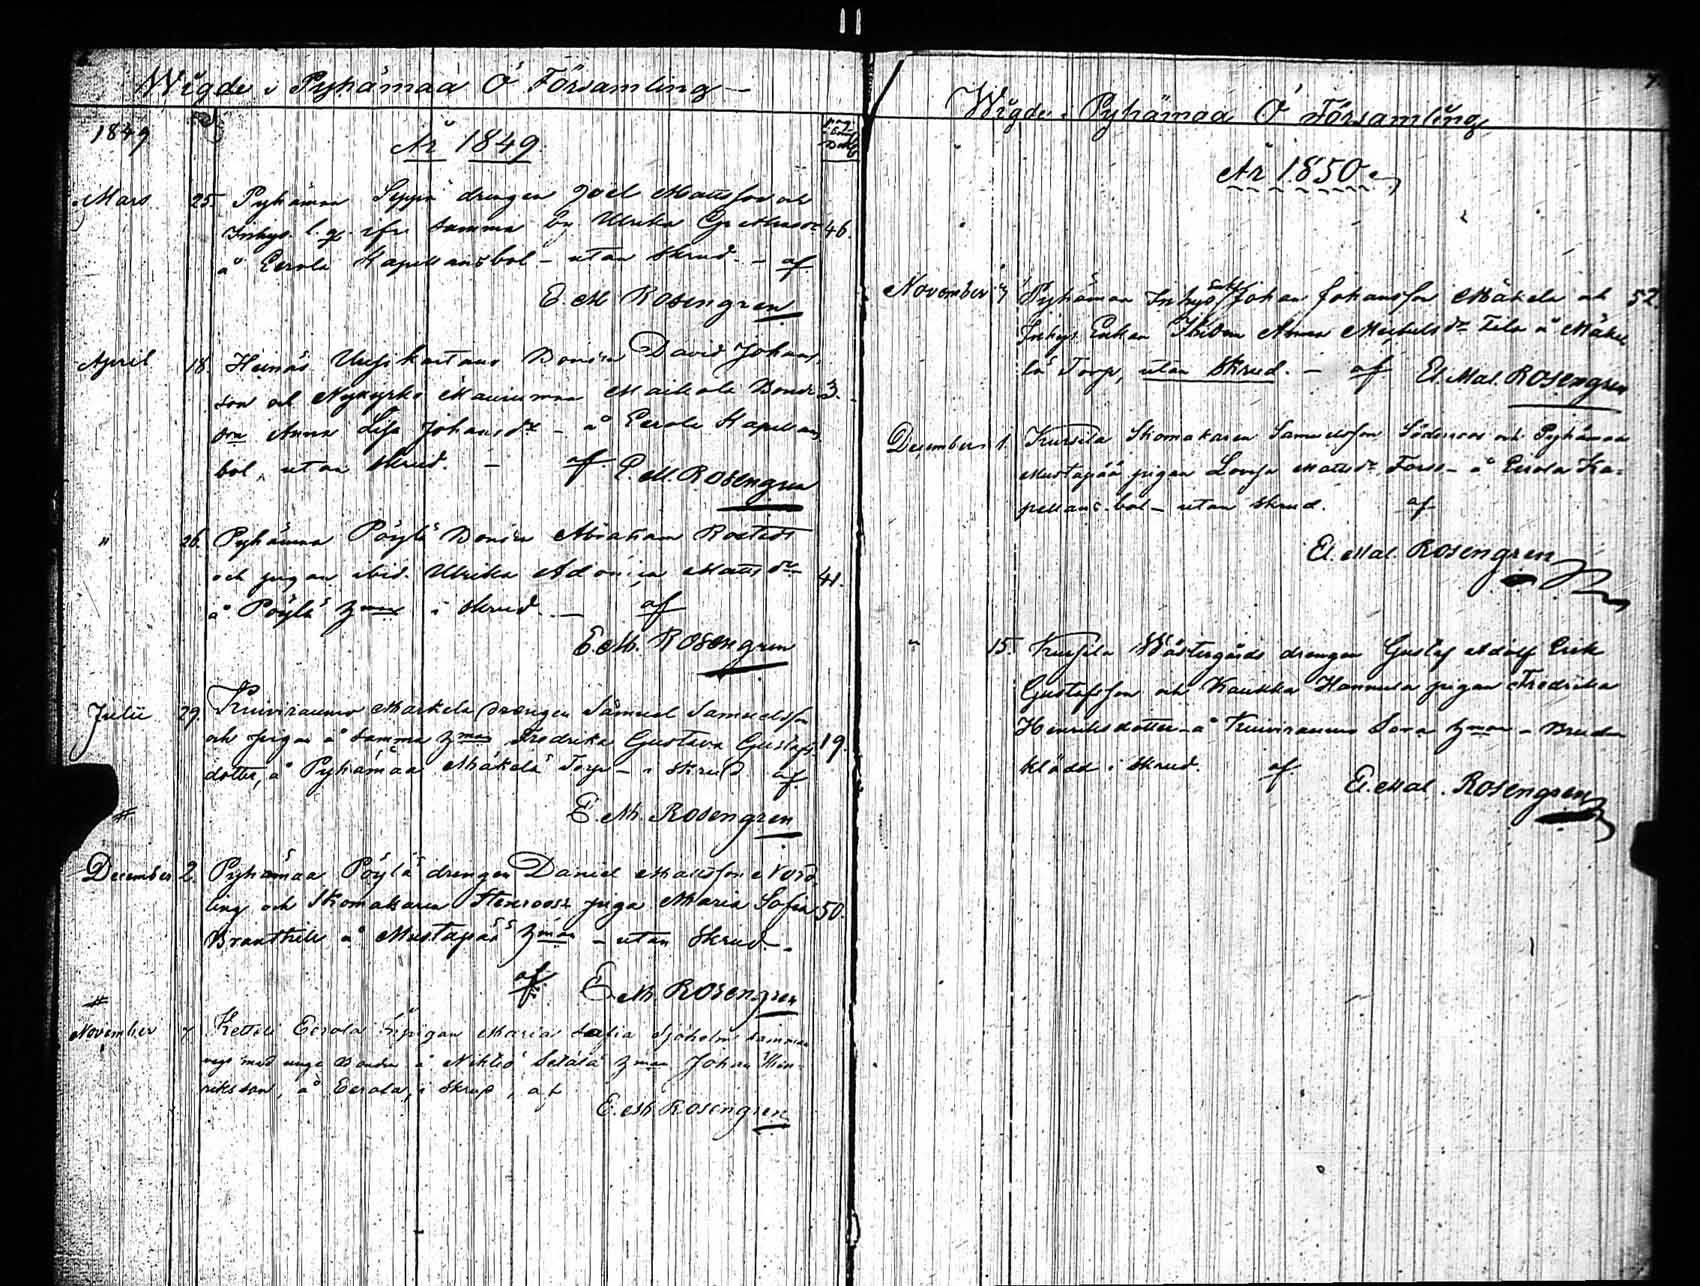 Wigde i Pyhämaa Ö Församling
1849
År 1849.
Mars 25. Pyhämaa Seppä drengen Joel Mattsson och
Inhys. samma by Ulrika 46.
å Eerola Kapellansbol - utan skrud. - af
E. M. Rosengren
April 18. Bonden David Johans
son och Nykyrko Maurumaa Maikola Bonde 3.
Anna Lisa Johansdr - å Eerola Kapellans
bol, utan skrud. - af E. M. Rosengren
" 26. Pyhämaa Pöylä Bonden Abraham Rostedt
och pigan ibid. Ulrika Mattsdr 41.
å Pöylä hman i skrud. - af
E. M. Rosengren
Julii 29. Kuiviraumo Markela drengen Samuel Samuelsson
och pigan å samma hman Fredrika Gustava Gustafs 19.
dotter, å Pyhämaa Mäkelä Torp - i skrud af
E. M. Rosengren
#
December 2. Pyhämaa Pöylä drengen Daniel Mattsson Nord
ling och Skomakaren Stenroos piga Maria Sofia 50.
å Mustapää hman - utan skrud.
af E M Rosengren
#
November 7 Ketteli Eerola pigan Maria Sofia Sjöholm samman
vigd med unge Bonden å Nikkiö Seälä hman Johan Hin-
riksson, å Eerola, i skrud, af
E. M. Rosengren
Wigde i Pyhämaa Ö Församling
År 1850.
November 7 Pyhämaa Inhys Johan Johansson Mäkelä och 52
Inhys Enkan Ibidem Anna Michelsdr å Mäke
lä Torp, utan skrud. - af El. Mal. Rosengren
December 1. Kursila Skomakaren Samuelsson Söderroos och Pyhämaa
Mustapää pigan Lovisa Mattsdr Forss - å Eerola Ka-
pellans-bol - utan skrud. af
El. Mal. Rosengren
" 15. Kursila Wästergårds drengen Gustaf Adolf Erik
Gustafsson och Kaukka Hannula pigan Fredrika
Henriksdotter - å Kuiviraumo Sora hman - Bruden
klädd i skrud. af El. Mal. Rosengren